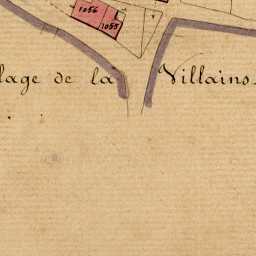 1056
1055
lage de la Villains.